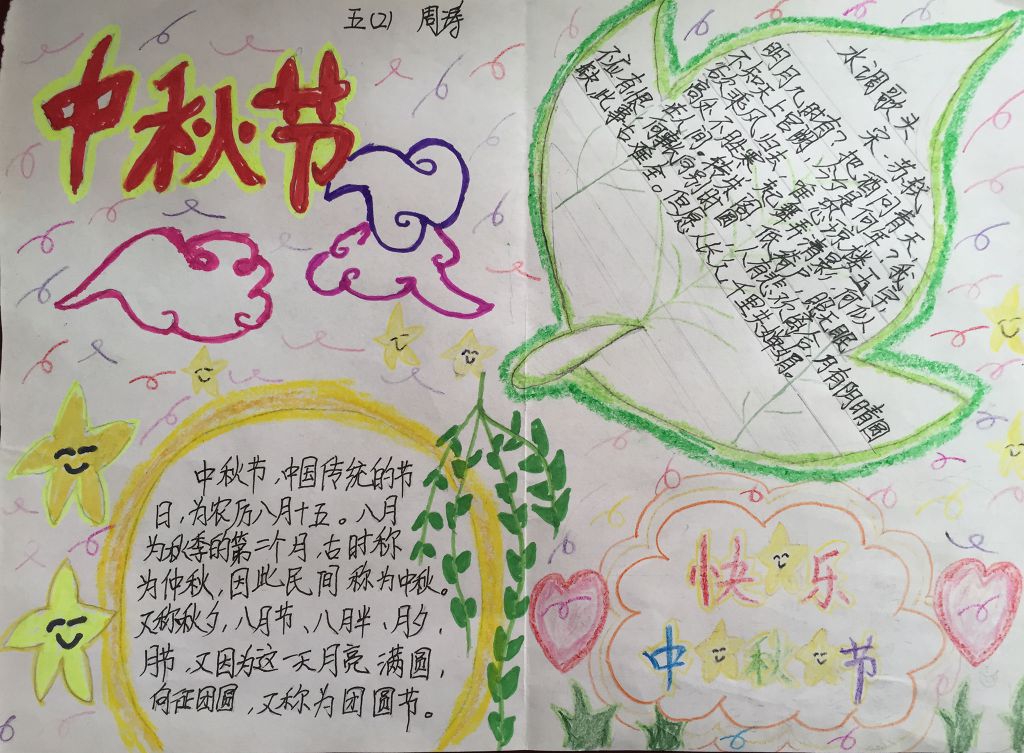 五(2) 周涛
中秋节
水调歌头
宋·苏轼
明月几时有?把酒问青天?
不知天上宫阙,今夕是何年?我
欲乘风归去,
高处不胜寒,
在人间。
不应有恨,何事长向别时圆
此事古难全。但愿人长久,千里共婵娟。
中秋节、中国传统的节
日,为农历八月十五。八月
为秋季的第二个月,古时称
为仲秋,因此民间称为中秋。
又称秋夕,八月节、八月半、月夕,
月节、又因为这一天月亮满圆,
团圆,又称为团圆节。
快乐
中秋节